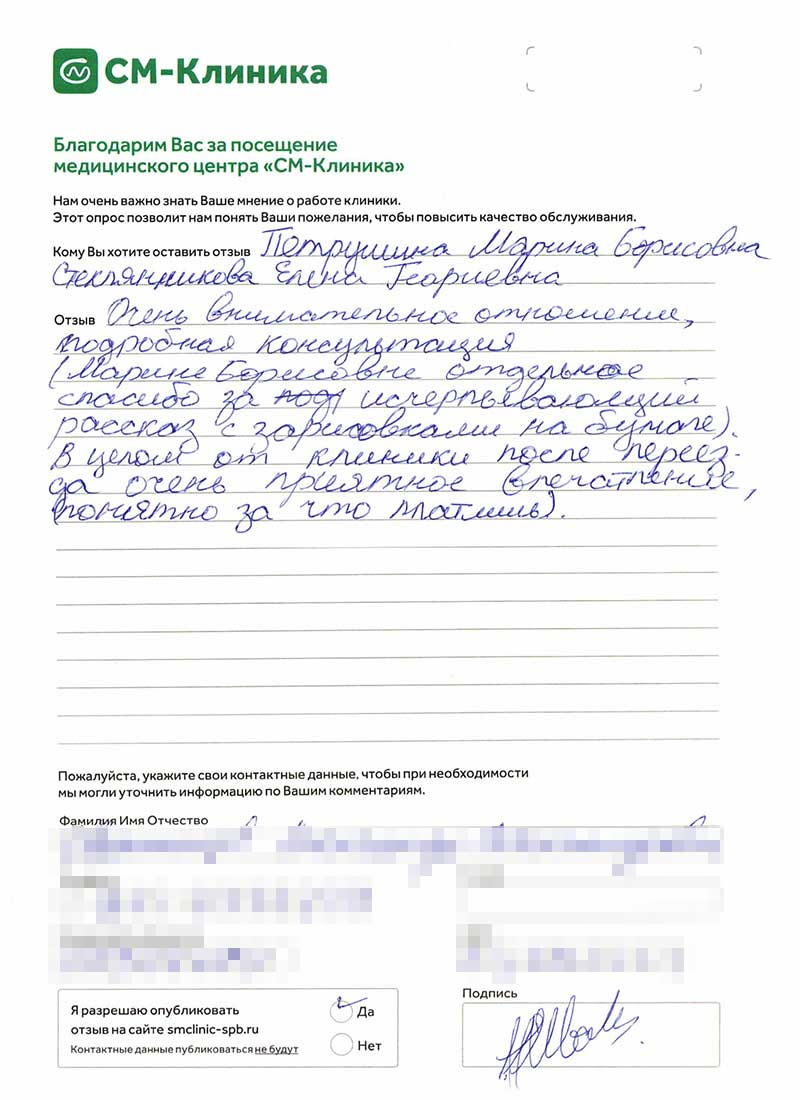 СМ-Клиника
Благодарим Вас за посещение
медицинского центра «СМ-Клиника»
Нам очень важно знать Ваше мнение о работе клиники.
Этот опрос позволит нам понять Ваши пожелания, чтобы повысить качество обслуживания.
Кому Вы хотите оставить отзыв Петрушина Марина Борисовна
Стеклянникова Елена Георгиевна
Отзыв Очень внимательное отношение,
подробная консультация
(Марине Борисовне отдельное
спасибо за исчерпывающий
рассказ с зарисовками на бумаге).
В целом от клиники после переез-
да очень приятное впечатление,
(понятно за что платишь).
Пожалуйста, укажите свои контактные данные, чтобы при необходимости
мы могли уточнить информацию по Вашим комментариям.
Фамилия Имя Отчество
Я разрешаю опубликовать
отзыв на сайте smclinic-spb.ru
Контактные данные публиковаться не будут
Да
Нет
Подпись